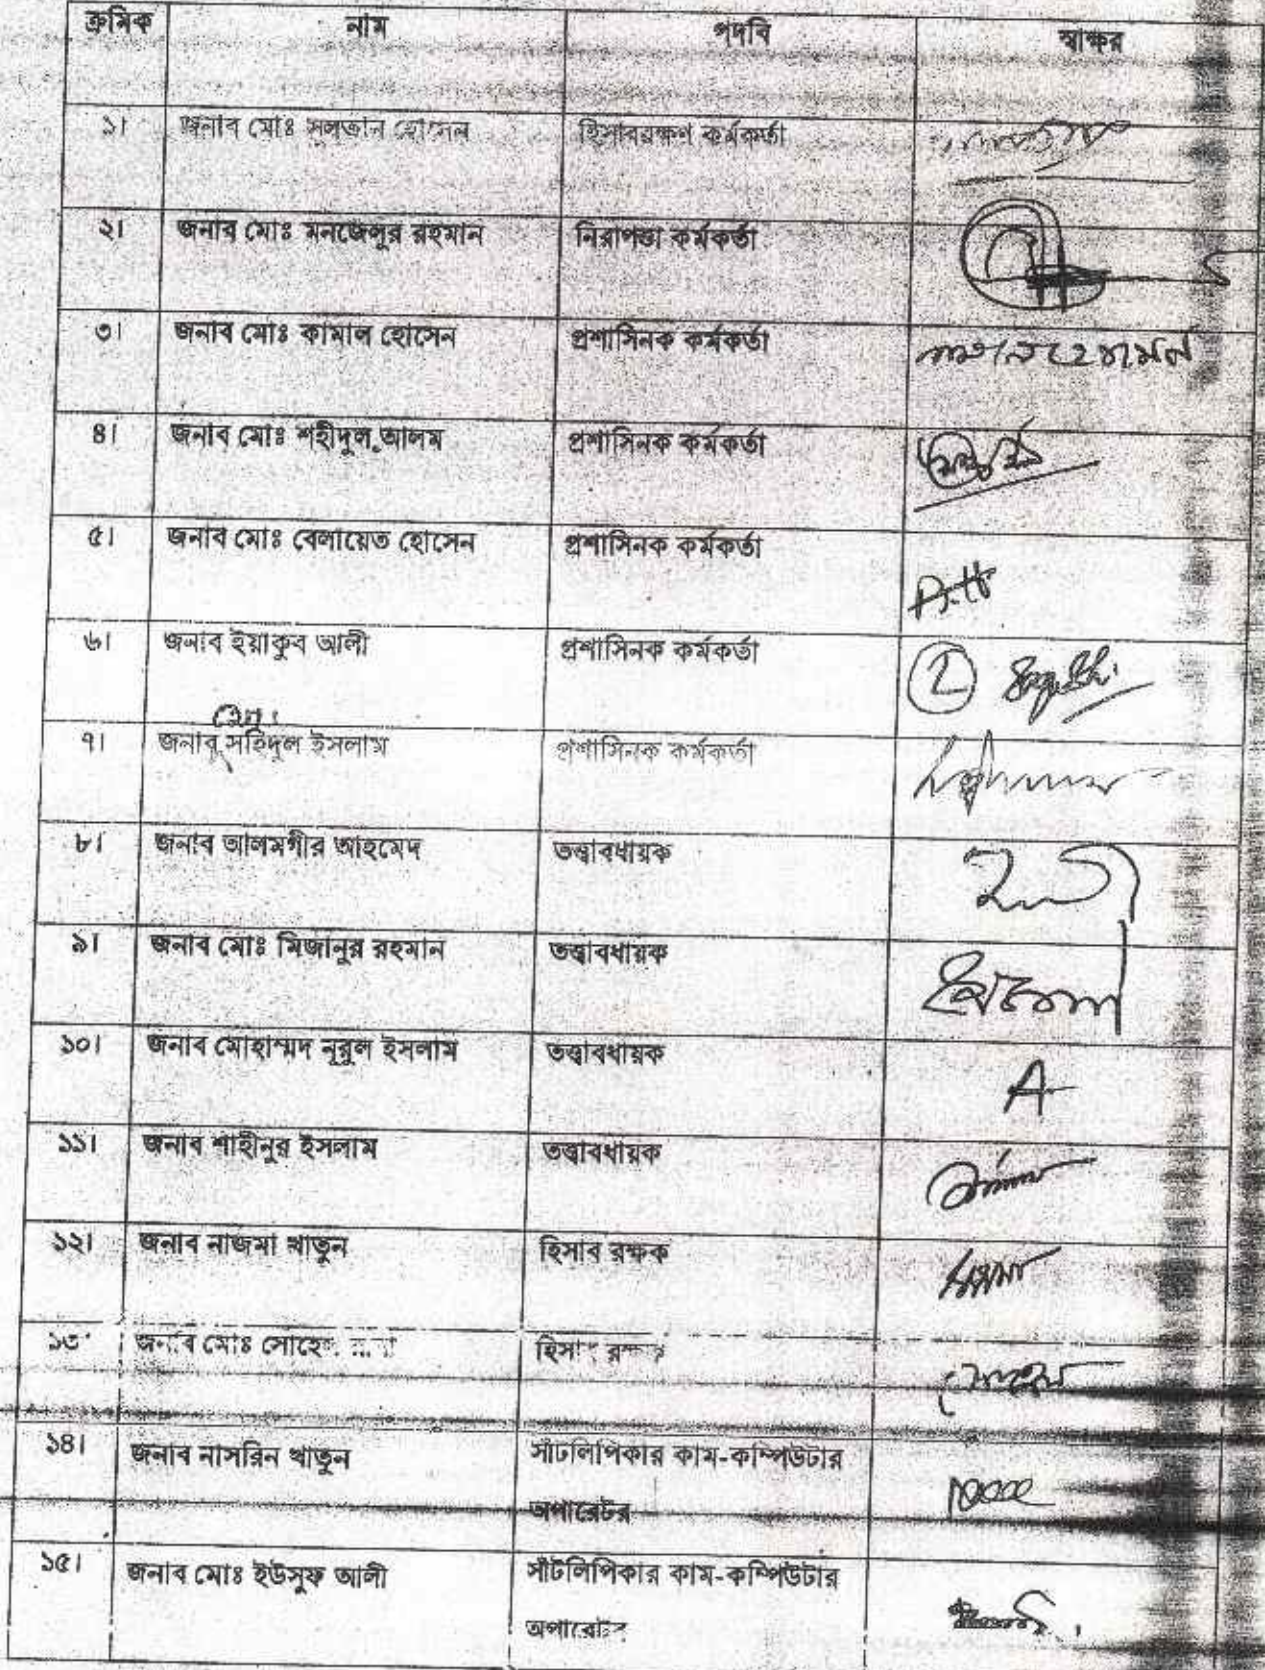 ক্রমিক নাম পদবি স্বাক্ষর
১। জনাব মোঃ সুলতান হোসেন হিসাবরক্ষণ কর্মকর্তা
২। জনাব মোঃ মনজেলুর রহমান নিরাপত্তা কর্মকর্তা
৩। জনাব মোঃ কামাল হোসেন প্রশাসিনক কর্মকর্তা
৪। জনাব মোঃ শহীদুল আলম প্রশাসিনক কর্মকর্তা
৫। জনাব মোঃ বেলায়েত হোসেন প্রশাসিনক কর্মকর্তা
৬। জনাব ইয়াকুব আলী প্রশাসিনক কর্মকর্তা
2
মোঃ
৭। জনাব সহিদুল ইসলাম প্রশাসিনক কর্মকর্তা
৮। জনাব আলমগীর আহমেদ তত্ত্বাবধায়ক
৯। জনাব মোঃ মিজানুর রহমান তত্ত্বাবধায়ক
১০। জনাব মোহাম্মদ নূরুল ইসলাম তত্ত্বাবধায়ক
১১। জনাব শাহীনুর ইসলাম তত্ত্বাবধায়ক
১২। জনাব নাজমা খাতুন হিসাব রক্ষক
১৩ জনাব মোঃ সোহেল হিসাব রক্ষক
১৪। জনাব নাসরিন খাতুন সাঁটলিপিকার কাম-কম্পিউটার
অপারেটর
১৫। জনাব মোঃ ইউসুফ আলী সাঁটলিপিকার কাম-কম্পিউটার
অপারেটর